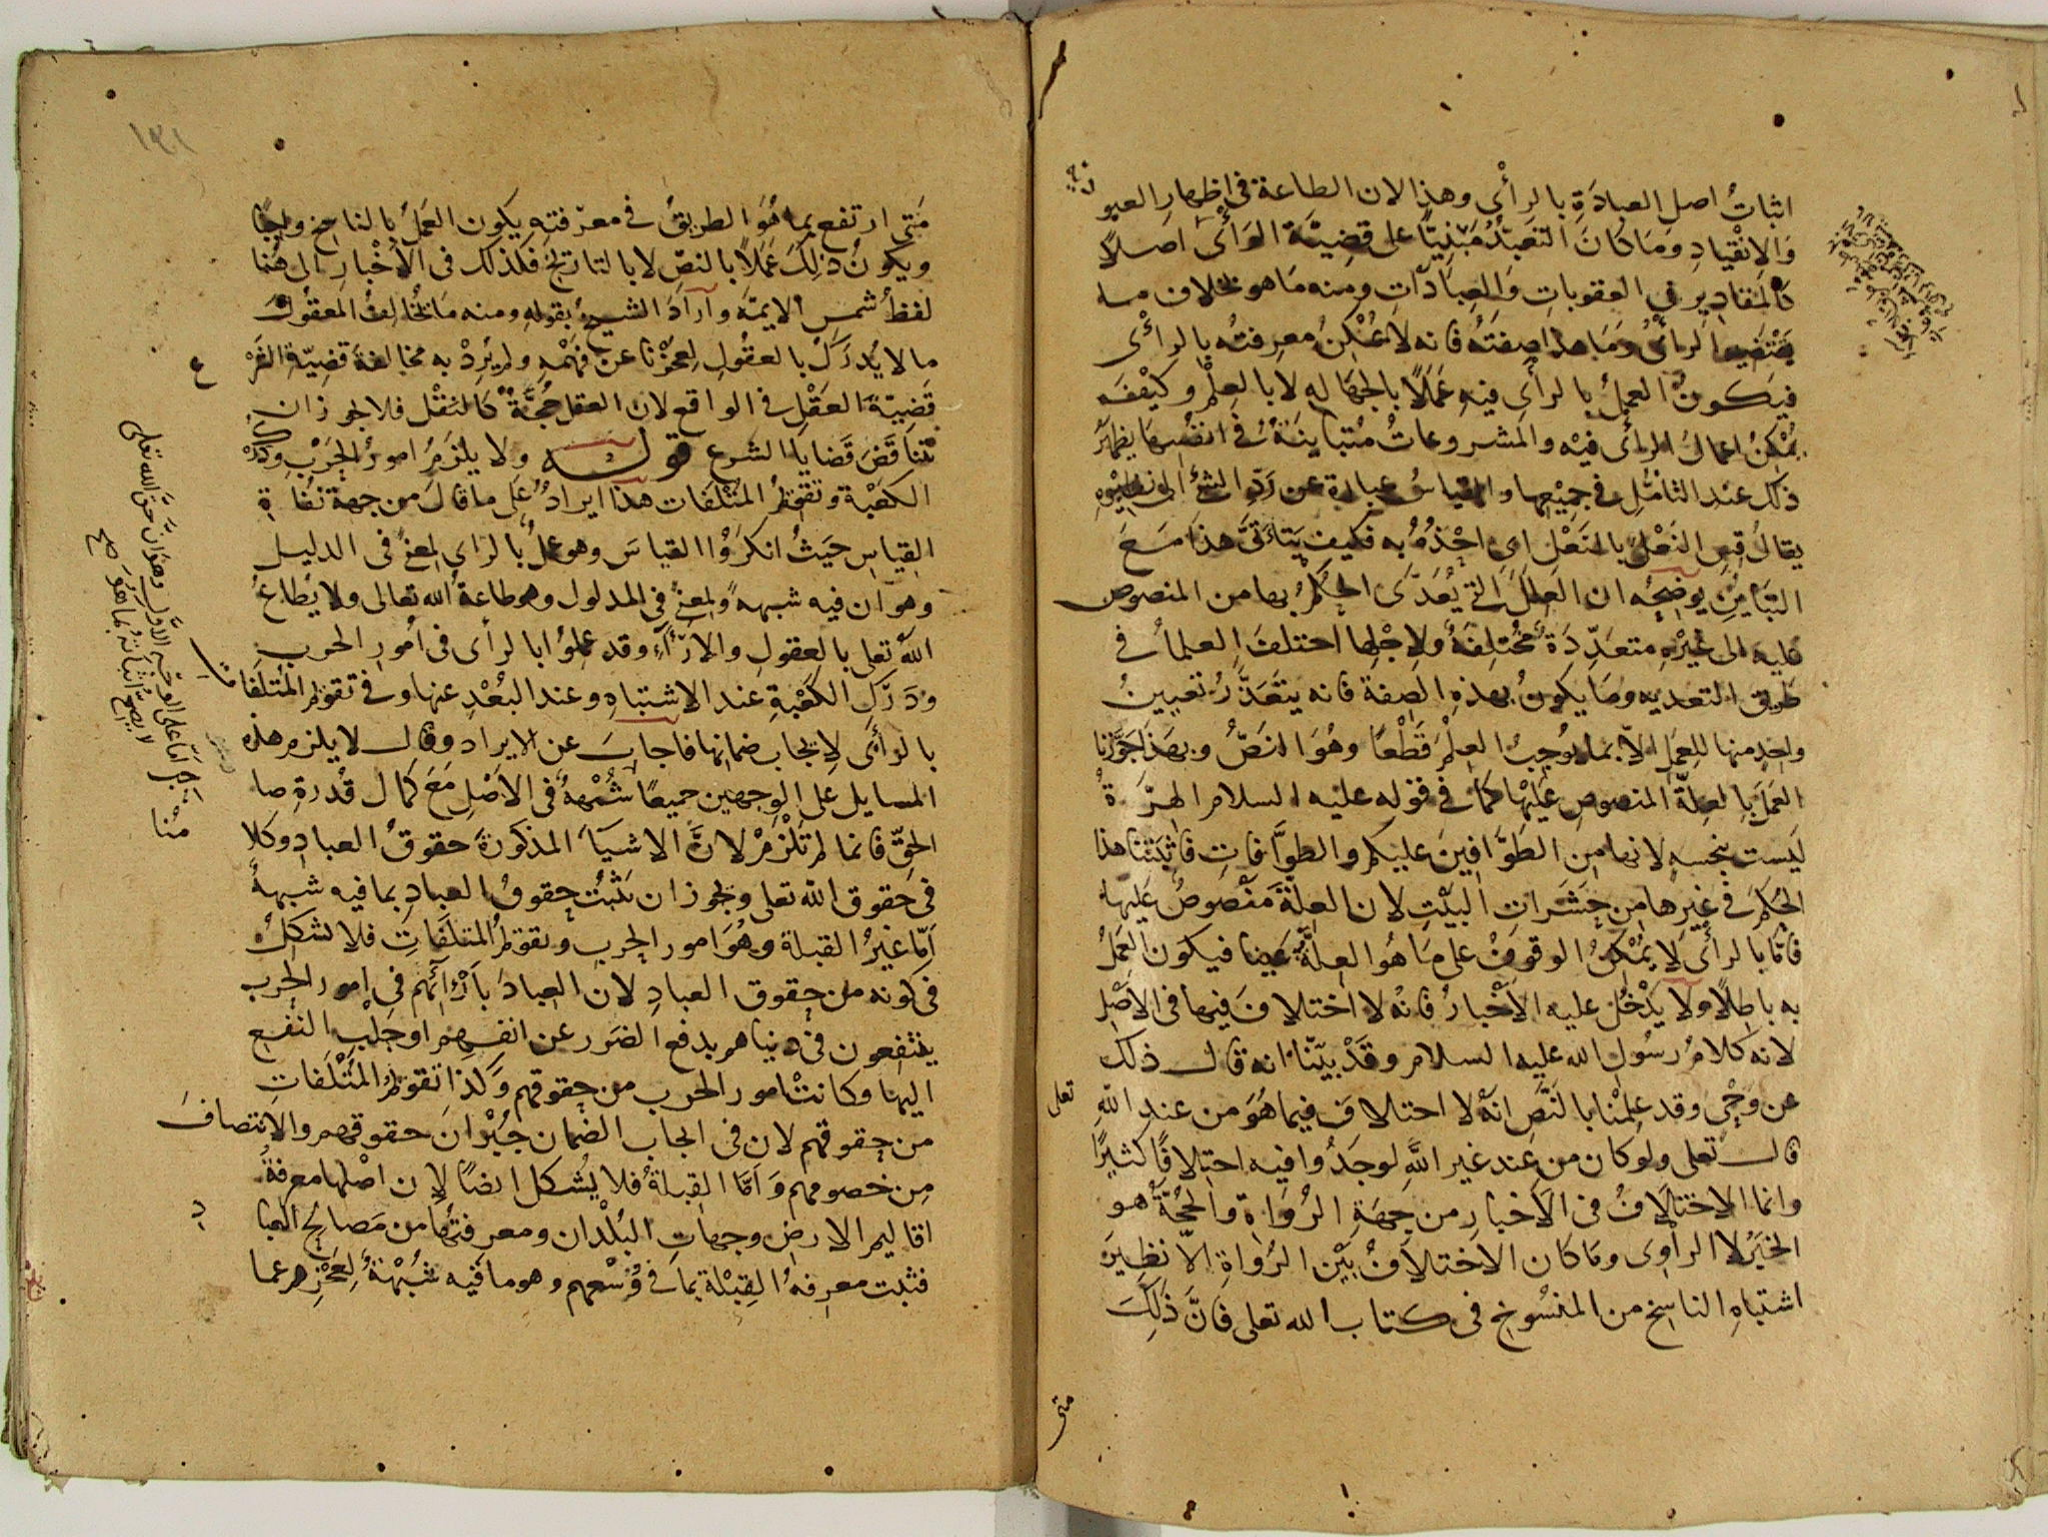 اثباتُ اصل العبادَةِ بالرأْي وهذا لان الطاعة في اظهار العبو
دية
والانْقيادِ ومَا كانَ التعَبدُ مَبْنِيًّا على قضِيّة الرَأْى اصلاً
كالمقادِير في العقوباتِ وَالعِبادَاتِ ومنه مَا هو بخلاف مـا
يقتضيه الرأىُ ومَا هذا صِفتُه فانه لا يُمْكِنُ معرفتُه بالرأْى
فيكونُ العملُ بالرأى فيهِ عَمَلًا بالجهَالهِ لا بالعِلْمِ وكيْفَ
يُمْكِنُ اعمالُ الرأى فيْه والمشروعاتُ مُتباينَةٌ في انفُسِهَا يظهرُ
ذلك عند التأمُّلِ في جميعِها والقياسُ عبارة عن رَدِّ الشئ الى نظيره
يقالُ قِسِ النَعْلَ بالنَعْلِ اى احْذُهُ به فكيف يَتأتىّ هذا مَعَ
التَبايُنِ يوضِحُه ان العِلَلَ التي يُعَدّى الحكمُ بها من المنصوص
عليه الى غيْرهِ متعدِّدَةٌ مُخْتلِفَةٌ ولاجْلِها اختلفَ العلمأُ في
طريق التعديه ومَا يكونُ بهذهِ الصِفة فانه يتعَذّرُ تعيينُ
واحدٍ منها للِعَملِ الاّ بما يُوجِبُ العِلْمَ قَطْعًا وهُوَ النَصُّ وبهذا جَوَّزنا
العَمَل بالعِلةّ المنصوصِ عليْها كمَا في قوله عليه السلام الهِرَّةُ
ليست بنجسه لانها من الطَوَّافِينَ عليكم والطوَّافاتِ فاثبتنا هذا
الحُكمَ في غيرِها من حشَراتِ البَيْتِ لان العِلّةَ مَنْصوصٌ عَليها
فاَمّا بالرأْى لا يُمْكنُ الوقوفُ على مَا هُو العِلةُّ عينا فيكون العمَلُ
به باطِلًا ولا يَدْخُل عليه الاَخْبارُ فانه لا اختلافَ فيها في الاَصْلِ
لانه كلامُ رسُولِ الله عليه السلام وقَدْ بيّنّا انه قال ذلك
عن وَحْيٍ وقد علِمْنا بالنَصِّ انهْ لا اختلافَ فيما هُوَ من عندِ اللّهِ
تعلى
قال تعلى ولو كان من عند غير اللَّهِ لوجَدُوا فيه اختِلافًا كثيرًا
وانما الاختلافُ في الاَخبارِ من جِهَةِ الرُوَاةِ والحُجَّةُ هو
الخبَرُ لا الراوِى ومَا كان الاختلافُ بيْن الرُواةِ الاّ نظِيرَ
اشتباهِ الناسِخِ من المنسُوخِ في كتاب الله تعلى فانَّ ذَلِكَ
متى
١٩١
مَتى ارتفع بما هُوَ الطريقُ في معرفتهِ يكون العَمَلُ بالناسخِ واجِبًا
ويكونُ ذلِكَ عَمَلاً بالنصِّ لا بالتاريخ فكذلك في الاَخْبارِ الى هُنا
لفظُ شمسِ الايمّه وارادَ الشيخُ بقولهِ ومنه مَا يُخالِفُ المعقُولَ
ما لا يُدرَكُ بالعقُولِ لِعجْزنا عن فهْمِهِ ولم يُرِدْ به مخالفةَ قضِيّة الشرْ
ع
قَضِيّةَ العَقْلِ في الواقع لان العقل حُجَّةٌ كالنقْل فلا يجوزان
تتناقَضَ قَضايَا الشرع قوله ولا يلزَمُ امورُ الحَرْبِ ودَرْكُ
الكَعْبة وتقوّمُ المتْلَفات هذا ايرادٌ على ما قال من جهة نُفَاةِ
القِياسِ حيَثُ انكَرُوْا القياسَ وهو عملٌ بالراى لمعنًى في الدليل
وهو ان فيه شبهةً ولمعنًى في المدلول وهو طاعةُ اللّه تعالى ولا يُطاعُ
اللّهُ تعلى بالعقولِ والارآءِ وقد عملوُا بالرأى في اُمورِ الحرب
ودَرَكِ الكَعْبةِ عند الاشتباهِ وعند البُعْدِ عنها وفي تقوّم المُتلَفات
بالرأى لايجاب ضمانها فاجابَ عن الايراد وقال لا يلزم هذه
المسايل على الوجهين جميعًا شُبْهةٌ في الاَصْلِ مَعَ كمال قُدرةِ صا
حب
الحقِّ فانما لم تَلْزَمْ لانَّ الاشيَآ المذكورَةَ حقوقُ العبادِ وكلامُنا
في حقوق اللّه تعلى ويجوزان تثبُتَ حقوقُ العبادِ بما فيه شبهةٌ
اَمّا غيرُ القبلةِ وهُوَ امور الحربِ وتقوّمُ المتلَفاتِ فلا نشكلُ
في كونه من حقوق العبادِ لان العبادَ بآرائهم في امورِ الحرب
ينتفعون في دنياهم بدفع الضَرر عن انفسهم او جلْبِ النفْعِ
اليها وكانتْ امور الحرب من حقوقهم وكذا تقوّمُ المُتْلَفاتِ
من حقوقهم لان في ايجاب الضمان جُبْرانَ حقوقهم والانتصافَ
مِن خصومهم وَاَمّا القِبلةُ فلا يُشكل ايضًا لان اصْلها معرفةُ
اقاليم الارضِ وجهاتِ البُلْدان ومعرفتُها من مَصالحِ العِبا
د
فثبتت معرفهُ القِبْلة بما في وُسْعهم وهو ما فيه شُبْهةٌ لِعَجْزِهم عما
اما على الوجه الاول وهو ان حقّ اللّه تعلى
لا يصحُّ اثباتُه بما هُوَ
صح